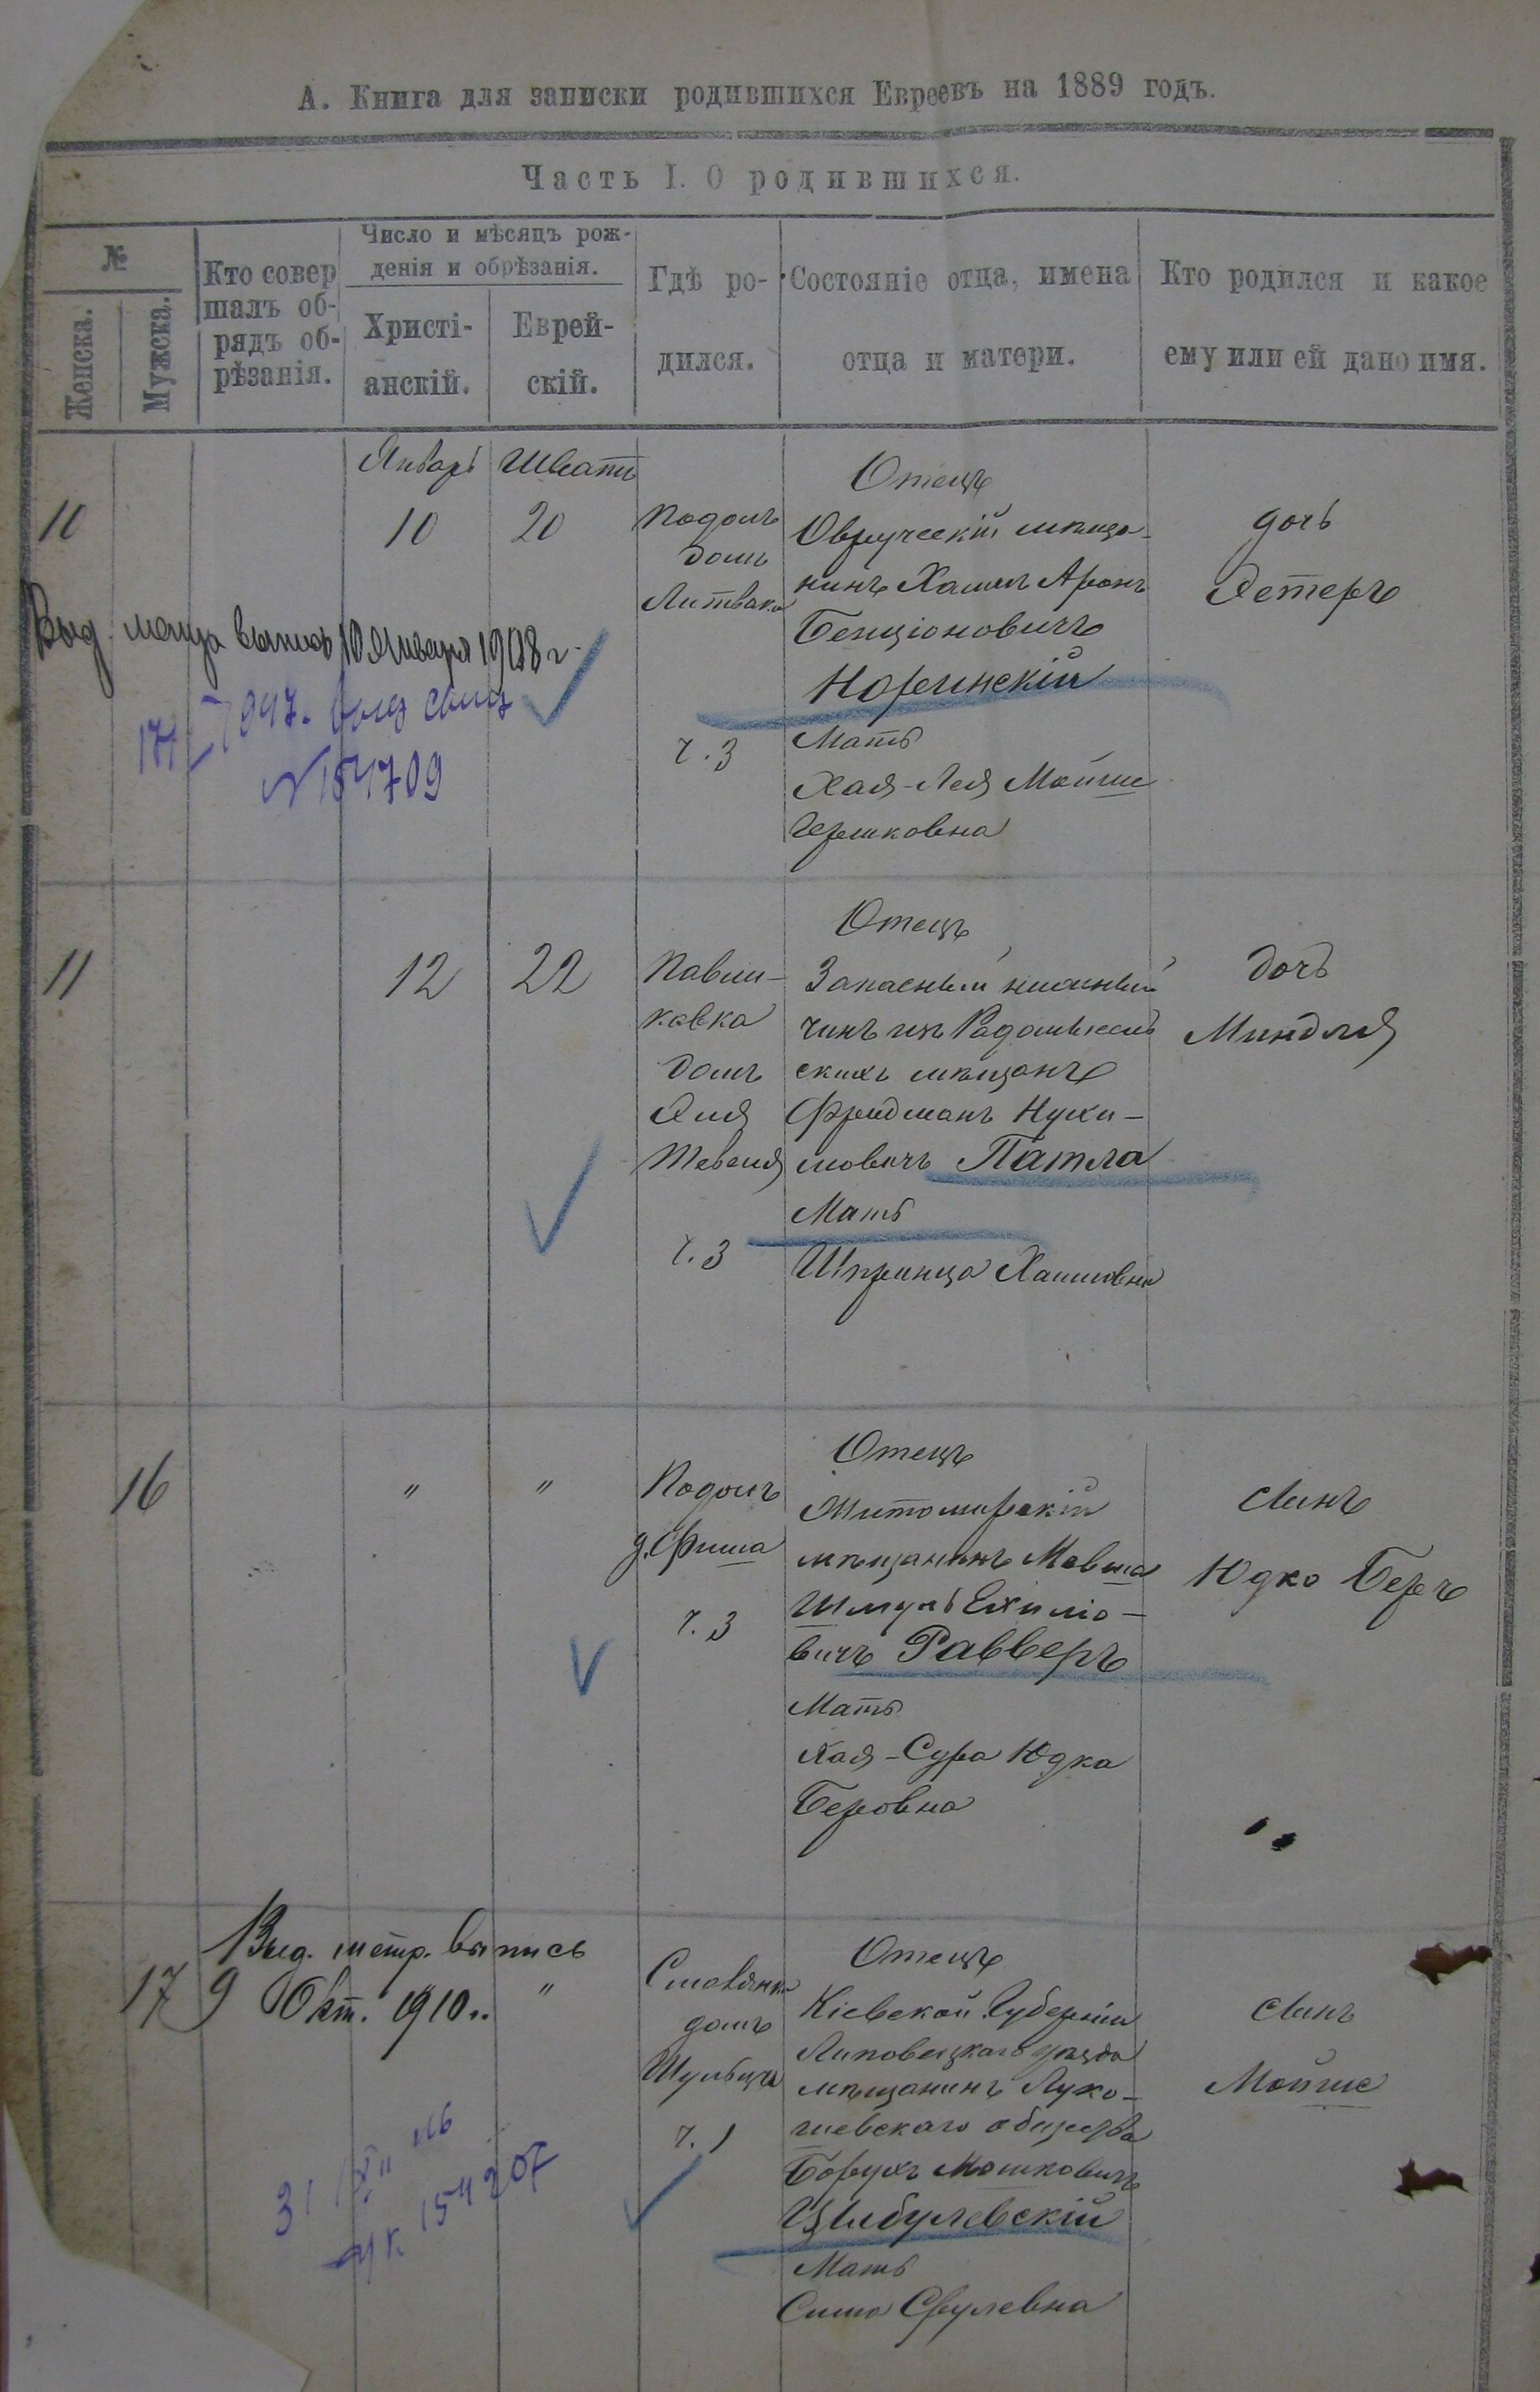 А. Книга для записки родившихся Евреевъ на 1889 годъ.
Часть I. О родившихся.
№
Женска.
Мужска.
Кто совер
шалъ об-
рядъ об-
рѣзанія.
Число и мѣсяцъ рож-
денія и обрѣзанія.
Христі-
анскій.
Еврей-
скій.
Гдѣ ро-
дился.
Состояніе отца, имена
отца и матери.
Кто родился и какое
ему или ей дано имя.
Январь
Шватъ
10
10
20
Подолъ
домъ
Литвака
ч. 3
Отецъ
Овручскій мѣща-
нинъ Хаимъ Аронъ
Бенціоновичъ
Норинскій
Мать
Хая-Лея Мойше
Гершковна
дочь
Эстеръ
Выд. выпись 10 Января 1908 г.
№ 154709
11
12
22
Павли-
ковка
домъ
ч. 3
Отецъ
Запасный нижній
чинъ изъ Радомысль
скихъ мѣщанъ
Фридманъ Нухи-
мовичъ Патла
Мать
Шпринца Хаимовна
дочь
Миндля
16
"
"
Подолъ
д. Фиша
ч. 3
Отецъ
Житомирскій
мѣщанинъ Мовша
Шмуль Ехиліо-
вичъ Равверъ
Мать
Хая-Сура Юдка
Беровна
сынъ
Юдко Беръ
Выд. метр. выпись
17
9 Окт. 1910 г.
"
домъ
Шульца
ч. 1
Отецъ
Кіевской Губерніи
Липовецкаго уѣзда
мѣщанинъ Лука-
шевскаго общества
Борухъ Мошковичъ
Цыбулевскій
Мать
Сима Срулевна
сынъ
Мойше
31
154207